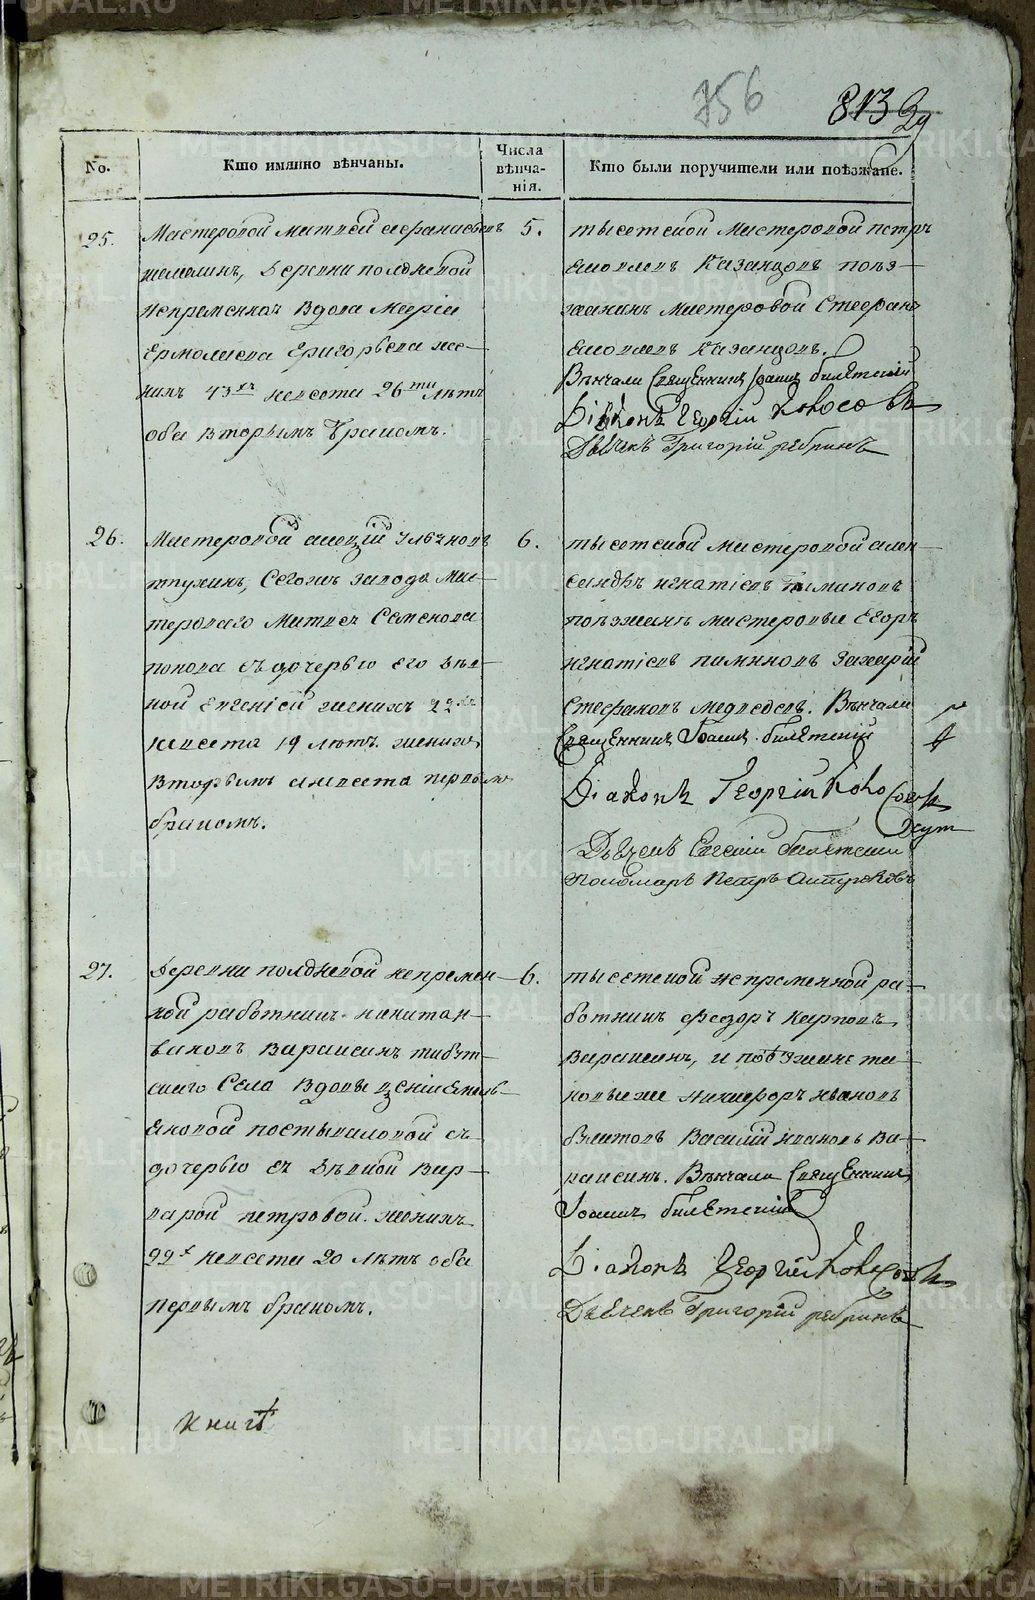 756
813 29
No.
Кто имянно вѣнчаны.
Числа
вѣнча-
нія.
Кто были поручители или поѣзжане.
25.
Мастеровой Матвей
деревни полдневой
непременнаго вдова Марія
Ермолаева Григорьева же-
нихъ 43хъ невеста 26ти лѣтъ
оба вторымъ бракомъ.
5.
тысетской мастеровой петръ
Казанцовъ поѣз-
жанинъ мастеровой Стефанъ
Казанцовъ.
Вѣнчали Священникъ Іоаннъ билетскій
Діаконъ Георгій
Дьячекъ Григорій ребринъ
26.
Мастеровой
Сегожъ завода Мас-
тероваго Матвея Семенова
попова съ дочерью его дѣв-
кой Евгеніей женихъ 22хъ
невеста 19 лѣтъ. женихъ
вторымъ а невеста первымъ
бракомъ.
6.
тысетской мастеровой алек-
сандръ игнатіевъ
поѣзжанѣ мастеровые Егоръ
игнатіевъ Захарій
Стефановъ медведевъ. Вѣнчали
Священникъ Іоаннъ билетскій
Діаконъ Георгій
Дьячекъ Евгений билетский
Пономарь Петръ
27.
Деревни полдневой непремен-
ной работникъ
вановъ Вараксинъ
скаго Села вдовы
съ
дочерью ея дѣвкой вар-
варой петровой. женихъ
22х невеста 20 лѣтъ оба
первымъ бракомъ.
6.
тысетской непременной ра-
ботникъ федоръ карповъ
Вараксинъ, и поѣзжанѣ та-
ковыеже никифоръ ивановъ
Василій ивановъ Ва-
раксинъ. Вѣнчали Священникъ
Іоаннъ билетскій
Діаконъ Георгій
Дьячекъ Григорій ребринъ
книгѣ
METRIKI.GASO-URAL.RU